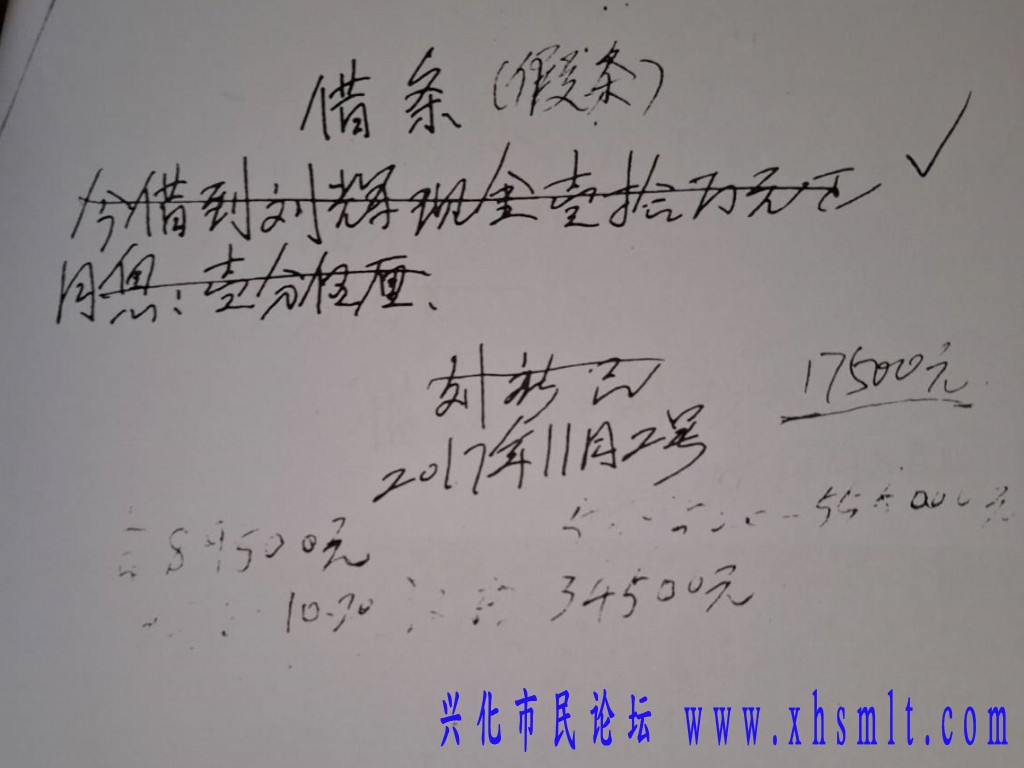 借条(假条)
今借到刘辉现金壹拾万元正
月息:壹分伍厘、
刘新
17500元
2017年11月2号
89500元
10.30
34500元
兴化市民论坛 www.xhsmlt.com